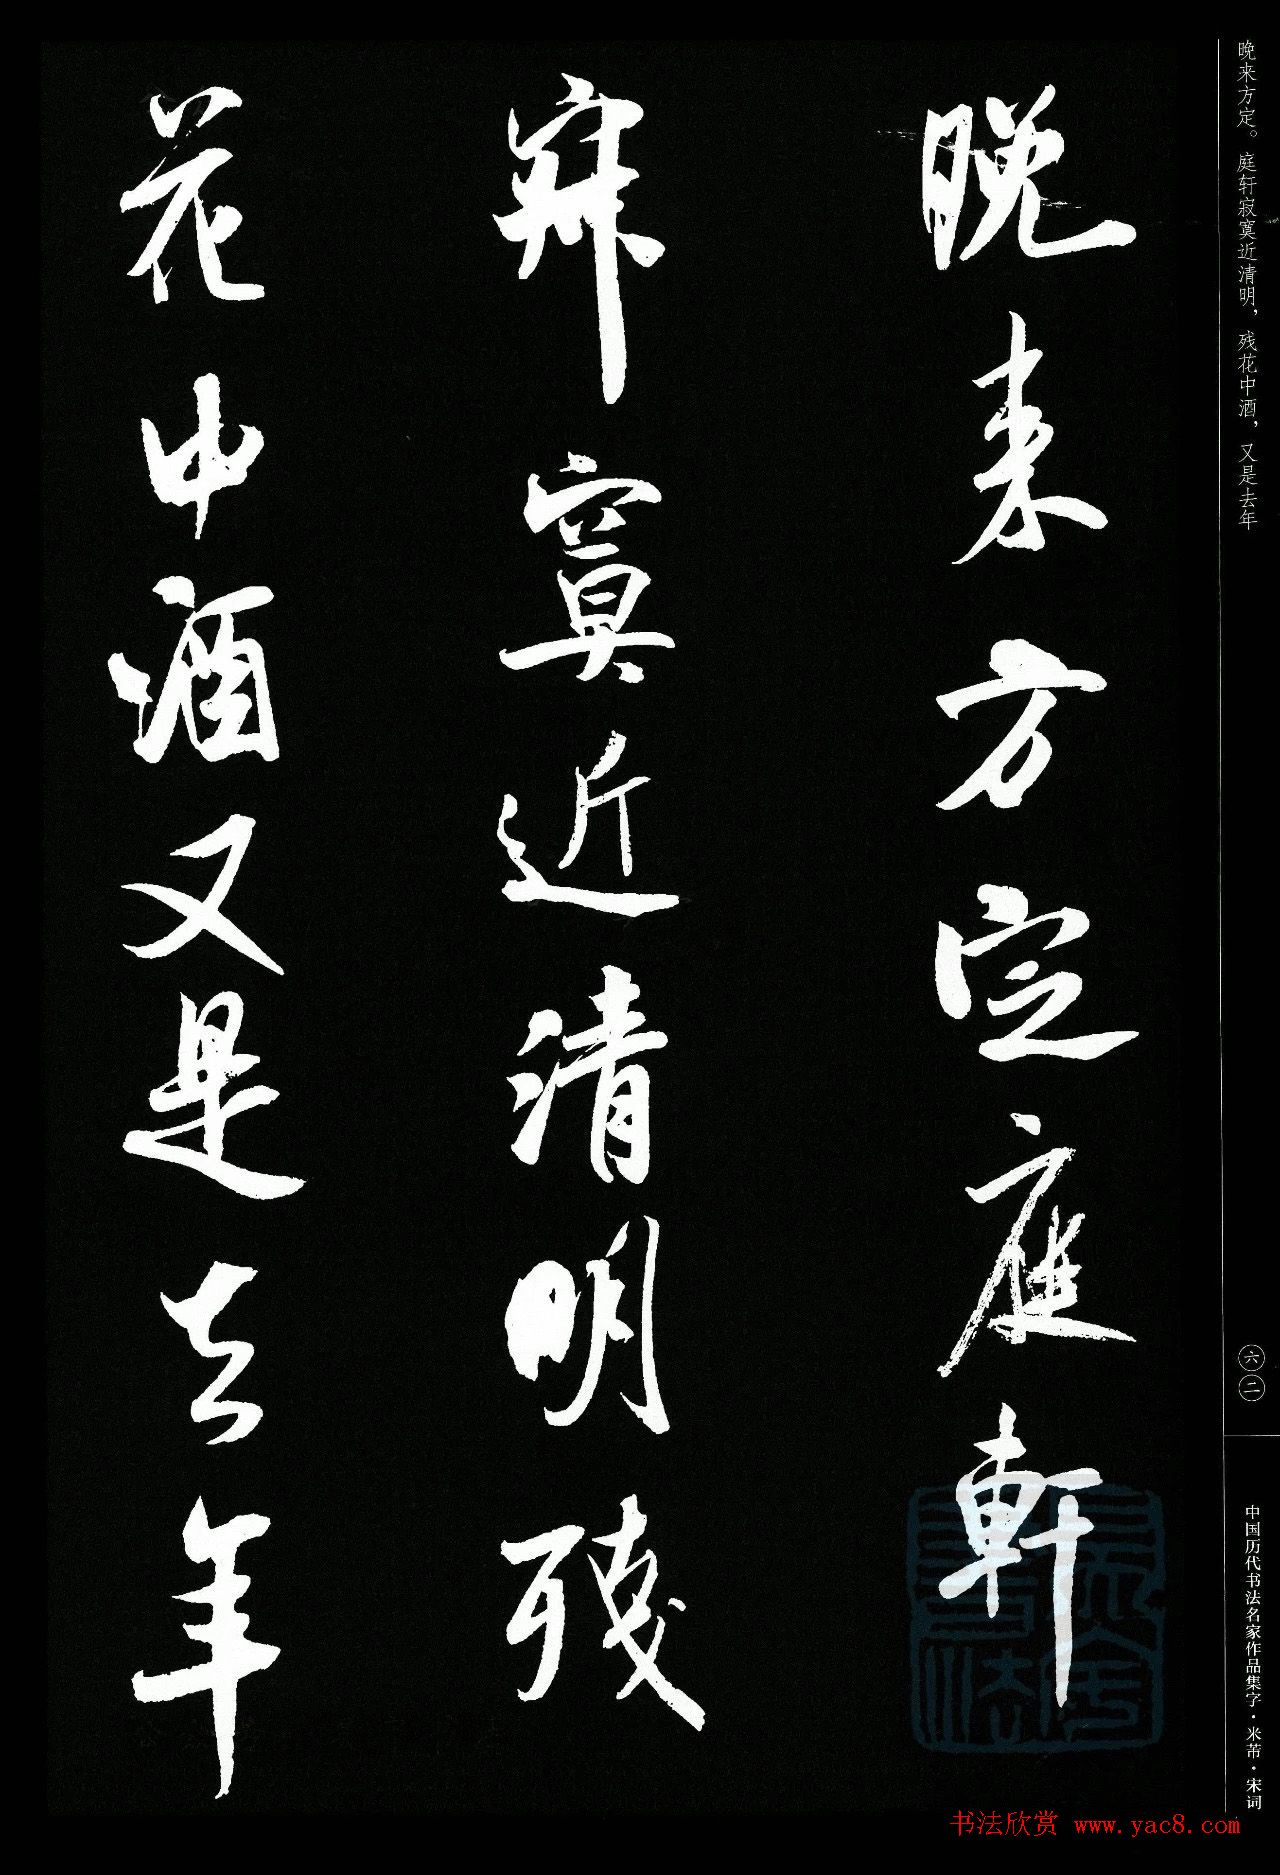 晚来方定。庭轩寂寞近清明，残花中酒，又是去年
晚来方定庭軒
寂寞近清明残
花中酒又是去年
六二
中国历代书法名家作品集字·米芾·宋词
书法欣赏 www.yac8.com